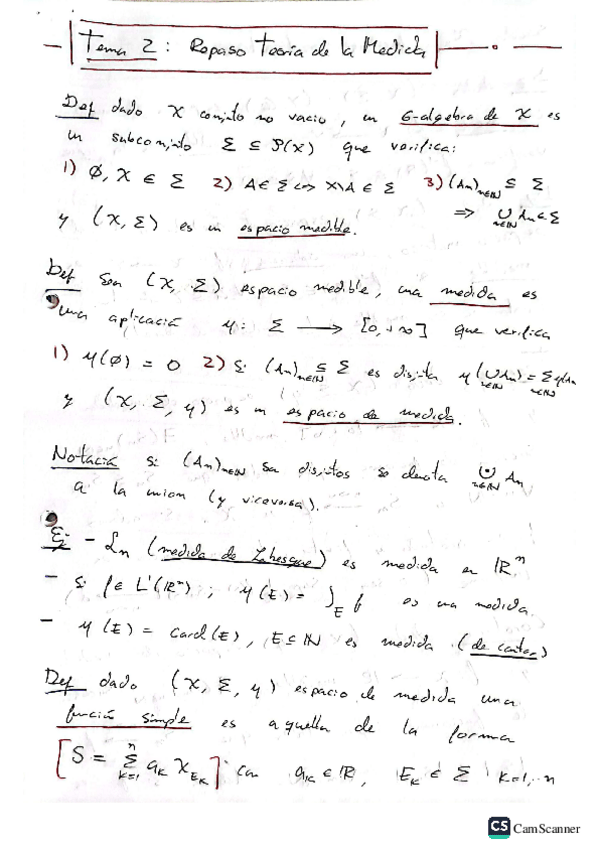 Tema 2: Repaso Teoría de la Medida
Def dado X conjunto no vacío, un σ-álgebra de X es
un subconjunto Σ ⊆ P(X) que verifica:
1) ∅, X ∈ Σ 2) A ∈ Σ ↔ X\A ∈ Σ 3) (An)n∈ℕ ⊆ Σ
⇒ ∪n∈ℕ An ∈ Σ
y (X, Σ) es un espacio medible.
Def Sean (X, Σ) espacio medible, una medida es
una aplicación μ: Σ → [0, +∞] que verifica
1) μ(∅) = 0 2) Si (An)n∈ℕ ⊆ Σ es disjunta μ(∪n∈ℕ An) = Σn∈ℕ μ(An
y (X, Σ, μ) es un espacio de medida.
Notación si (An)n∈ℕ son disjuntos se denota ⊍n∈ℕ An
a la union (y viceversa).
Ej - Ln (medida de Lebesgue) es medida en ℝⁿ
- Si f ∈ L¹(ℝⁿ); μ(E) = ∫E f es una medida
- μ(E) = Card(E), E ⊆ ℕ es medida (de contar)
Def dado (X, Σ, μ) espacio de medida una
función simple es aquella de la forma
[S = Σk=1ⁿ ak χEk] con ak ∈ ℝ, Ek ∈ Σ k=1,...n
CS CamScanner